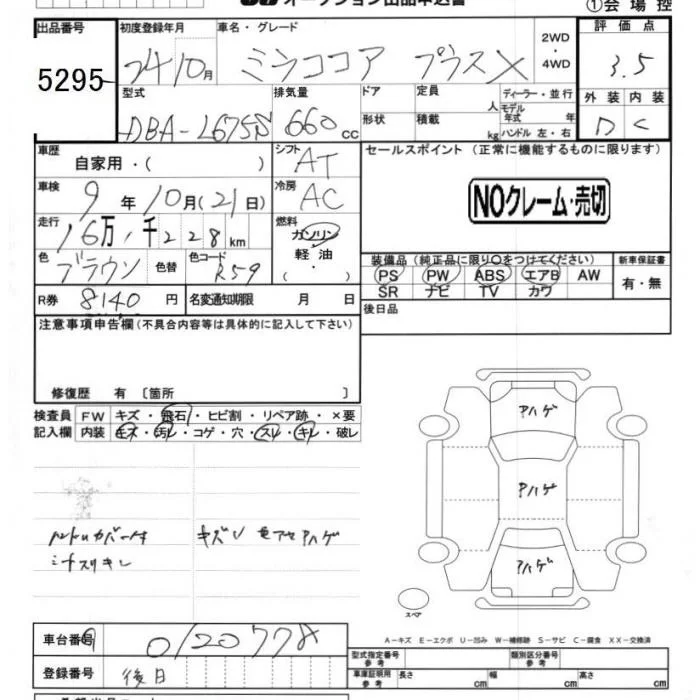 オークション出品申込書
①会場控
出品番号 初度登録年月 車名・グレード 評価点
5295 24 10月 ミラココア プラスX 2WD・4WD 3.5
型式 排気量 ドア 定員 人 ディーラー・並行 外装 内装
DBA-L675S 660cc 形状 積載 kg モデル年式 年 ハンドル 左・右 D C
車歴 自家用・( ) シフト AT セールスポイント (正常に機能するものに限ります)
車検 9年10月(21日) 冷房 AC NOクレーム・売切
走行 16万1千228km 燃料 ガソリン
軽油・( )
色 ブラウン 色替 色コード R59
装備品(純正品に限り○をつけてください) 新車保証書
PS PW ABS エアB AW 有・無
SR ナビ TV カワ
R券 8140円 名変通知期限 月 日 後日品
注意事項申告欄(不具合内容等は具体的に記入して下さい)
修復歴 有 〔箇所 〕
検査員 FW キズ・飛石・ヒビ割・リペア跡・×要
記入欄 内装 キズ・汚れ・コゲ・穴・スレ・キレ・破レ
アハゲ
アハゲ
アハゲ
キズU
スペア
A-キズ E-エクボ U-凹み W-補修跡 S-サビ C-腐食 XX-交換済
車台番号 0120778
登録番号 後日
型式指定番号 参考 類別区分番号 参考
車庫証明用 参考 長さ cm 幅 cm 高さ cm